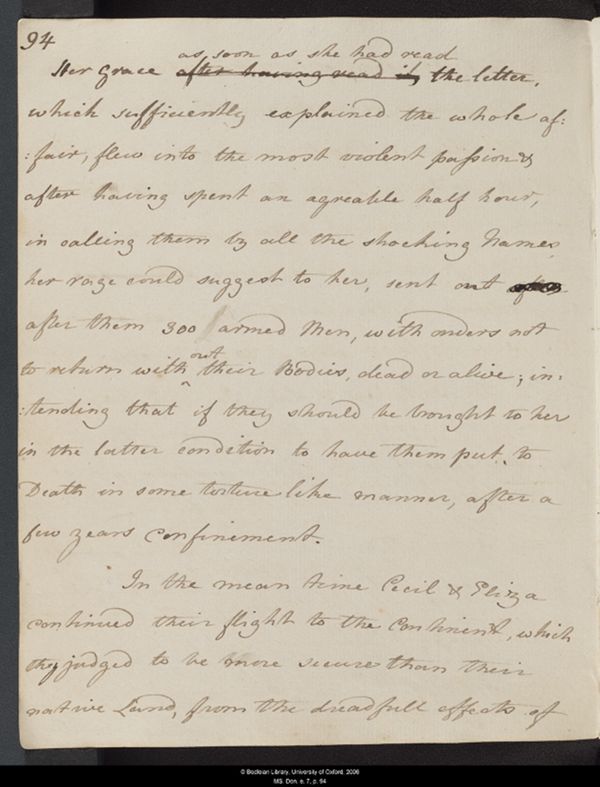 94
as soon as she had read
Her Grace after having read it, the letter,
which sufficiently explained the whole af:
:fair, flew into the most violent passion &
after having spent an agreable half hour,
in calling them by all the shocking Names
her rage could suggest to her, sent out
after them 300 armed Men, with orders not
out
to return with their Bodies, dead or alive; in:
:tending that if they should be brought to her
in the latter condition to have them put to
Death in some torturelike manner, after a
few years Confinement.
In the mean time Cecil & Eliza
continued their flight to the Continent, which
they judged to be more secure than their
native Land, from the dreadfull effects of
© Bodleian Library, University of Oxford, 2006
MS. Don. e. 7, p. 94